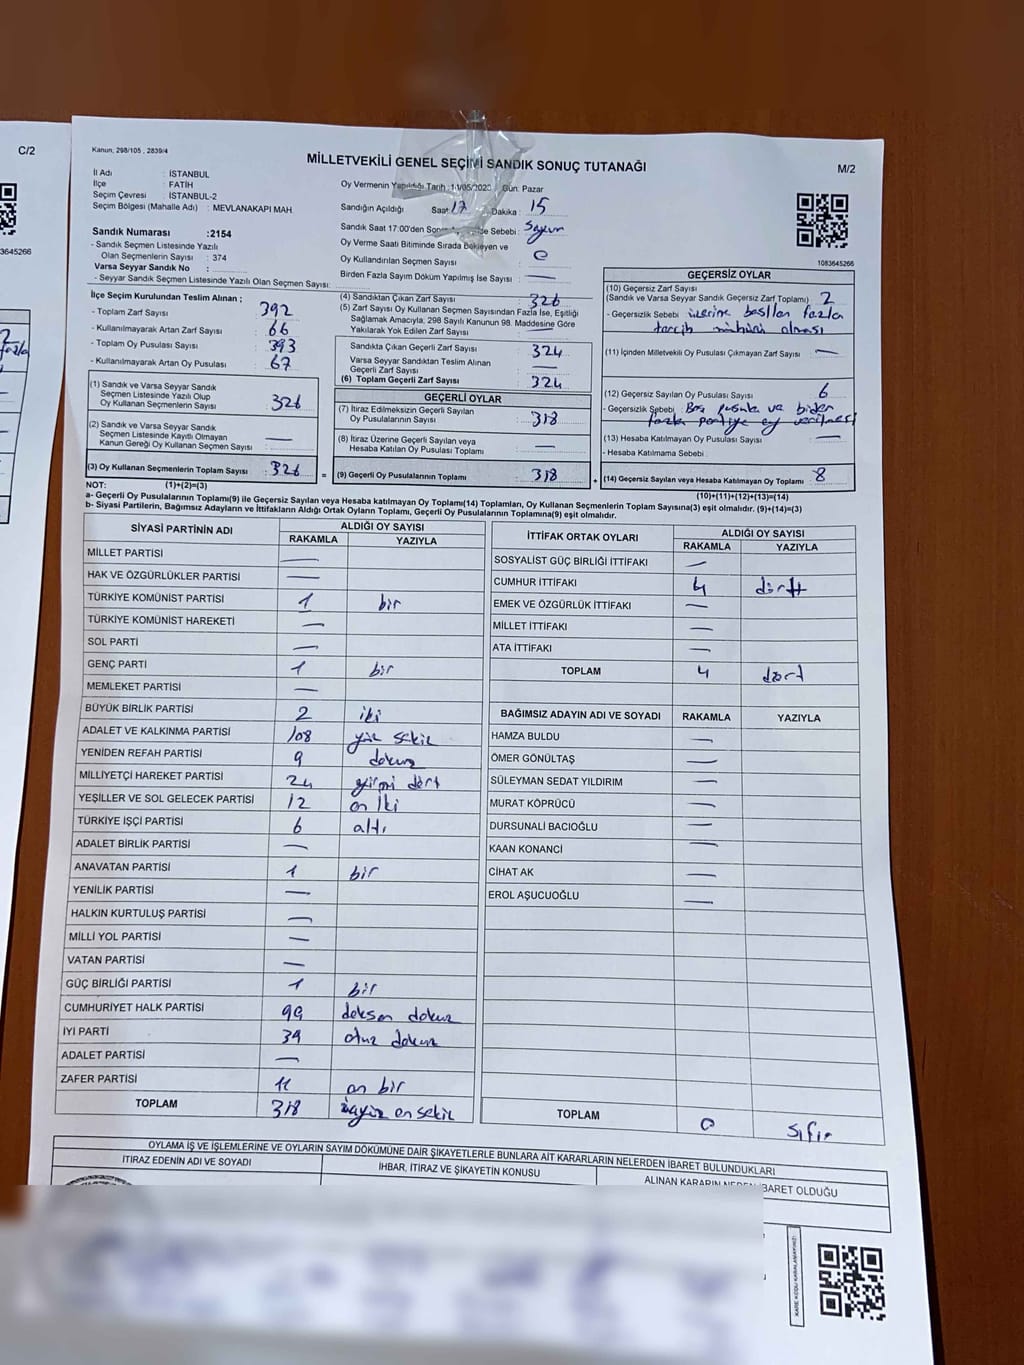 C/2
3645266
Kanun, 298/105 , 2839/4
MİLLETVEKİLİ GENEL SEÇİMİ SANDIK SONUÇ TUTANAĞI
M/2
İl Adı : İSTANBUL
İlçe : FATİH
Seçim Çevresi : İSTANBUL-2
Seçim Bölgesi (Mahalle Adı) : MEVLANAKAPI MAH
Oy Vermenin Yapıldığı Tarih : Gün: Pazar
Sandığın Açıldığı Saat: 17 Dakika : 15
Sandık Saat 17:00'den Sebebi: Sayım
Oy Verme Saati Bitiminde Sırada Bekleyen ve
Oy Kullandırılan Seçmen Sayısı :
Birden Fazla Sayım Döküm Yapılmış İse Sayısı : —
Sandık Numarası :2154
- Sandık Seçmen Listesinde Yazılı
Olan Seçmenlerin Sayısı : 374
Varsa Seyyar Sandık No :
- Seyyar Sandık Seçmen Listesinde Yazılı Olan Seçmen Sayısı:
1083645266
İlçe Seçim Kurulundan Teslim Alınan ;
- Toplam Zarf Sayısı : 392
- Kullanılmayarak Artan Zarf Sayısı : 66
- Toplam Oy Pusulası Sayısı : 393
- Kullanılmayarak Artan Oy Pusulası : 67
(1) Sandık ve Varsa Seyyar Sandık
Seçmen Listesinde Yazılı Olup
Oy Kullanan Seçmenlerin Sayısı : 326
(2) Sandık ve Varsa Seyyar Sandık
Seçmen Listesinde Kayıtlı Olmayan
Kanun Gereği Oy Kullanan Seçmen Sayısı : —
(3) Oy Kullanan Seçmenlerin Toplam Sayısı : 326
(4) Sandıktan Çıkan Zarf Sayısı : 326
(5) Zarf Sayısı Oy Kullanan Seçmen Sayısından Fazla İse, Eşitliği
Sağlamak Amacıyla, 298 Sayılı Kanunun 98. Maddesine Göre
Yakılarak Yok Edilen Zarf Sayısı : —
Sandıkta Çıkan Geçerli Zarf Sayısı : 324
Varsa Seyyar Sandıktan Teslim Alınan
Geçerli Zarf Sayısı : —
(6) Toplam Geçerli Zarf Sayısı : 324
GEÇERLİ OYLAR
(7) İtiraz Edilmeksizin Geçerli Sayılan
Oy Pusulalarının Sayısı : 318
(8) İtiraz Üzerine Geçerli Sayılan veya
Hesaba Katılan Oy Pusulası Toplamı : —
= (9) Geçerli Oy Pusulalarının Toplamı : 318
GEÇERSİZ OYLAR
(10) Geçersiz Zarf Sayısı
(Sandık ve Varsa Seyyar Sandık Geçersiz Zarf Toplamı) : 2
- Geçersizlik Sebebi : üzerine basılan fazla
tercih mühürü olması
(11) İçinden Milletvekili Oy Pusulası Çıkmayan Zarf Sayısı : —
(12) Geçersiz Sayılan Oy Pusulası Sayısı : 6
- Geçersizlik Sebebi : Boş pusula ve birden
fazla partiye oy verilmesi
(13) Hesaba Katılmayan Oy Pusulası Sayısı : —
- Hesaba Katılmama Sebebi :
+ (14) Geçersiz Sayılan veya Hesaba Katılmayan Oy Toplamı : 8
NOT: (1)+(2)=(3)
(10)+(11)+(12)+(13)=(14)
a- Geçerli Oy Pusulalarının Toplamı(9) ile Geçersiz Sayılan veya Hesaba katılmayan Oy Toplamı(14) Toplamları, Oy Kullanan Seçmenlerin Toplam Sayısına(3) eşit olmalıdır. (9)+(14)=(3)
b- Siyasi Partilerin, Bağımsız Adayların ve İttifakların Aldığı Ortak Oyların Toplamı, Geçerli Oy Pusulalarının Toplamına(9) eşit olmalıdır.
SİYASİ PARTİNİN ADI ALDIĞI OY SAYISI
RAKAMLA YAZIYLA
MİLLET PARTİSİ —
HAK VE ÖZGÜRLÜKLER PARTİSİ —
TÜRKİYE KOMÜNİST PARTİSİ 1 bir
TÜRKİYE KOMÜNİST HAREKETİ —
SOL PARTİ —
GENÇ PARTİ 1 bir
MEMLEKET PARTİSİ —
BÜYÜK BİRLİK PARTİSİ 2 iki
ADALET VE KALKINMA PARTİSİ 108 yüz sekiz
YENİDEN REFAH PARTİSİ 9 dokuz
MİLLİYETÇİ HAREKET PARTİSİ 24 yirmi dört
YEŞİLLER VE SOL GELECEK PARTİSİ 12 on iki
TÜRKİYE İŞÇİ PARTİSİ 6 altı
ADALET BİRLİK PARTİSİ —
ANAVATAN PARTİSİ 1 bir
YENİLİK PARTİSİ —
HALKIN KURTULUŞ PARTİSİ —
MİLLİ YOL PARTİSİ —
VATAN PARTİSİ —
GÜÇ BİRLİĞİ PARTİSİ 1 bir
CUMHURİYET HALK PARTİSİ 99 doksan dokuz
İYİ PARTİ 39 otuz dokuz
ADALET PARTİSİ —
ZAFER PARTİSİ 11 on bir
TOPLAM 318 üçyüz on sekiz
İTTİFAK ORTAK OYLARI ALDIĞI OY SAYISI
RAKAMLA YAZIYLA
SOSYALİST GÜÇ BİRLİĞİ İTTİFAKI —
CUMHUR İTTİFAKI 4 dört
EMEK VE ÖZGÜRLÜK İTTİFAKI —
MİLLET İTTİFAKI —
ATA İTTİFAKI —
TOPLAM 4 dört
BAĞIMSIZ ADAYIN ADI VE SOYADI RAKAMLA YAZIYLA
HAMZA BULDU —
ÖMER GÖNÜLTAŞ —
SÜLEYMAN SEDAT YILDIRIM —
MURAT KÖPRÜCÜ —
DURSUNALİ BACIOĞLU —
KAAN KONANCİ —
CİHAT AK —
EROL AŞUCUOĞLU —
TOPLAM 0 sıfır
OYLAMA İŞ VE İŞLEMLERİNE VE OYLARIN SAYIM DÖKÜMÜNE DAİR ŞİKAYETLERLE BUNLARA AİT KARARLARIN NELERDEN İBARET BULUNDUKLARI
İTİRAZ EDENİN ADI VE SOYADI İHBAR, İTİRAZ VE ŞİKAYETİN KONUSU ALINAN KARARIN NEDEN İBARET OLDUĞU